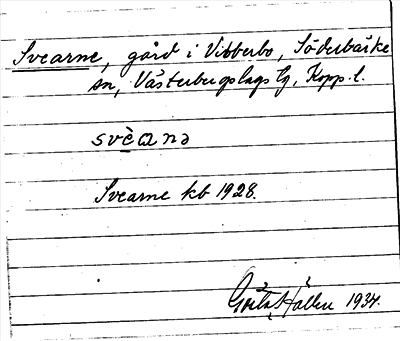 Svearne, gård i Vibberbo, Söderbärke
sn, Västerbergslags tg, Kopp. l.
svèanə
Svearne kb 1928.
Gösta Hallen 1934.